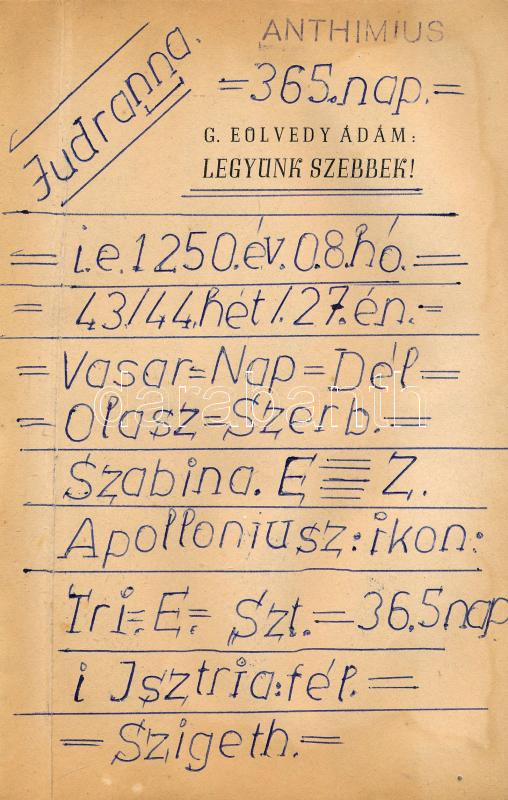 ANTHIMIUS
Judranna.
=365.nap.=
G. EÖLVEDY ÁDÁM:
LEGYÜNK SZEBBEK!
=i.e.1250.év.08.hó.=
=43/44.hét/.27.én.=
=Vasar=Nap=Dél=
=Olasz=Szerb.=
darabanth
Szabina. E≡Z.
Apolloniusz:ikon:
Tri=E= Szt.=365nap
i Isztria:fél.=
=Szigeth.=